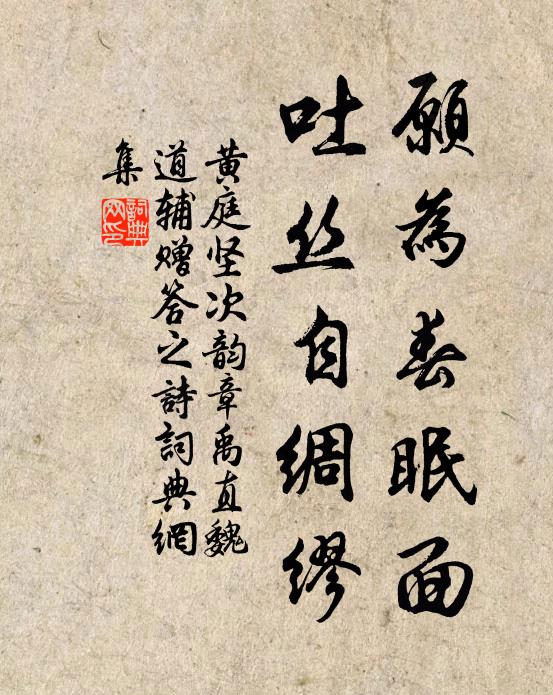 願為春眠面
吐丝自綢繆
黄庭坚次韵章禹直魏
道辅赠答之詩詞典網
集
詞典
网印